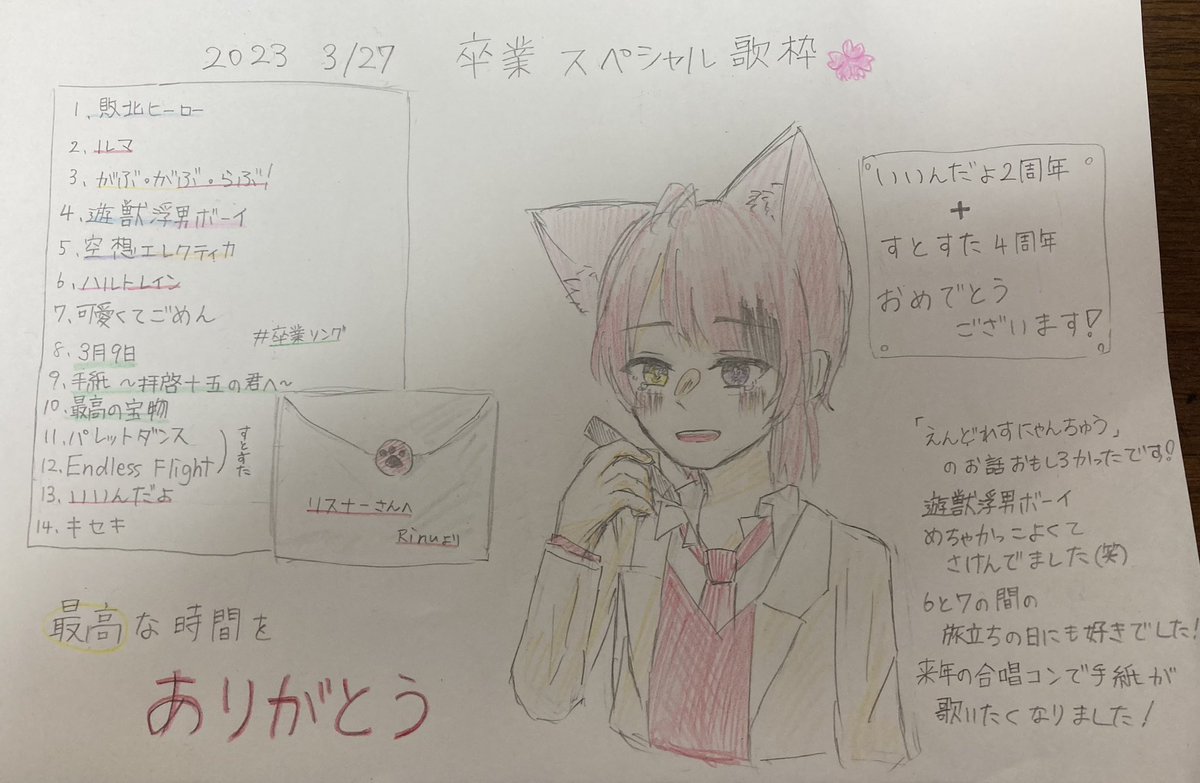 2023 3/27 卒業スペシャル歌枠
1. 敗北ヒーロー
2. ルマ
3. がぶ・がぶ・らぶ!
4. 遊獣浮男ボーイ
5. 空想エレクティカ
6. ハルトレイン
7. 可愛くてごめん
#卒業ソング
8. 3月9日
9. 手紙 〜拝啓十五の君へ〜
10. 最高の宝物
11. パレットダンス
12. Endless Flight
すとすた
13. いいんだよ
14. キセキ
リスナーさんへ
Rinuより
最高な時間を
ありがとう
いいんだよ2周年
+
すとすた4周年
おめでとう
ございます!
「えんどれすにゃんちゅう」
のお話おもしろかったです!
遊獣浮男ボーイ
めちゃかっこよくて
さけんでました(笑)
6と7の間の
旅立ちの日にも好きでした!
来年の合唱コンで手紙が
歌いたくなりました!